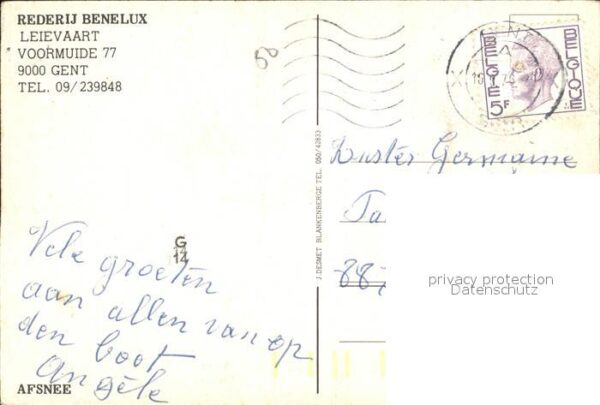 REDERIJ BENELUX
LEIEVAART
VOORMUIDE 77
9000 GENT
TEL. 09/239848
BELGIQUE
BELGIE
5F
J. DESMET BLANKENBERGE TEL. 050/42833
Zuster Germaine
Ta
88
privacy protection
Datenschutz
G
14
Vele groeten
aan allen van op
den boot
Angèle
AFSNEE